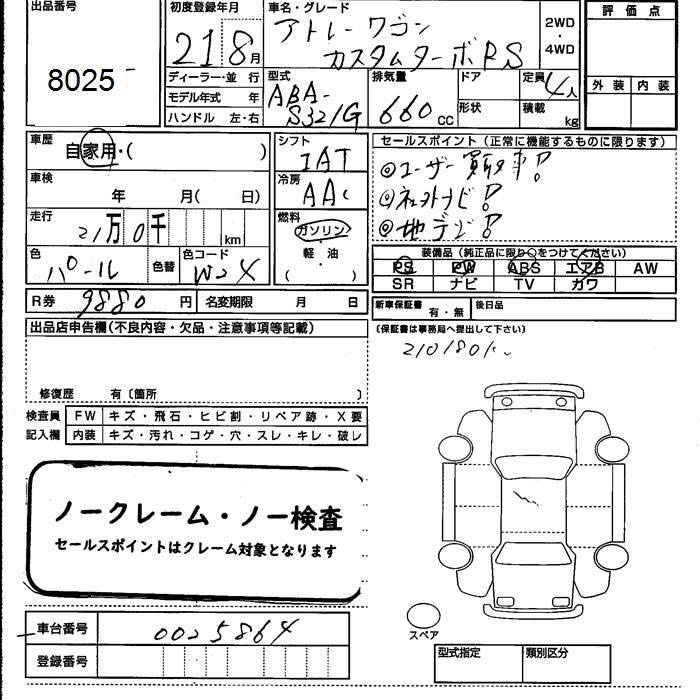 出品番号
8025
初度登録年月
21 8月
車名・グレード
アトレーワゴン
カスタムターボRS
2WD
・
4WD
評価点
外装 内装
ディーラー・並 行
モデル年式 年
ハンドル 左・右
型式
ABA-
S321G
排気量
660 cc
ドア
形状
定員
4人
積載
kg
車歴
自家用・( )
車検
年 月( 日)
走行
21万0千 km
色
パール
色替
色コード
W24
シフト
IAT
冷房
AAC
燃料
ガソリン
軽・油
( )
セールスポイント(正常に機能するものに限ります)
◎ユーザー買取車!
◎社外ナビ!
◎地デジ!
装備品(純正品に限り○をつけてください)
PS PW ABS エアB AW
SR ナビ TV カワ
R券 9880 円 名変期限 月 日
新車保証書 有・無 後日品
(保証書は事務局へ提出して下さい)
出品店申告欄(不良内容・欠品・注意事項等記載)
210180K
修復歴 有〔箇所 〕
検査員 FW キズ・飛石・ヒビ割・リペア跡・X要
記入欄 内装 キズ・汚れ・コゲ・穴・スレ・キレ・破レ
ノークレーム・ノー検査
セールスポイントはクレーム対象となります
車台番号 0025864
登録番号
スペア
型式指定 類別区分